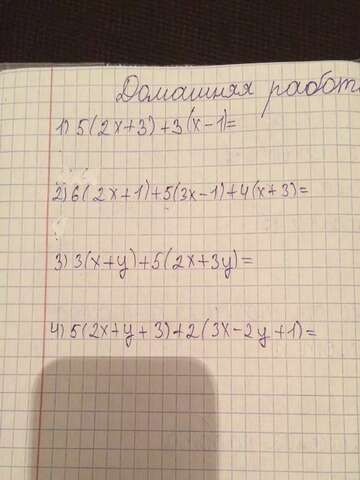 Домашняя работ
1) 5(2x+3)+3(x-1)=
2) 6(2x+1)+5(3x-1)+4(x+3)=
3) 3(x+y)+5(2x+3y)=
4) 5(2x+y+3)+2(3x-2y+1)=